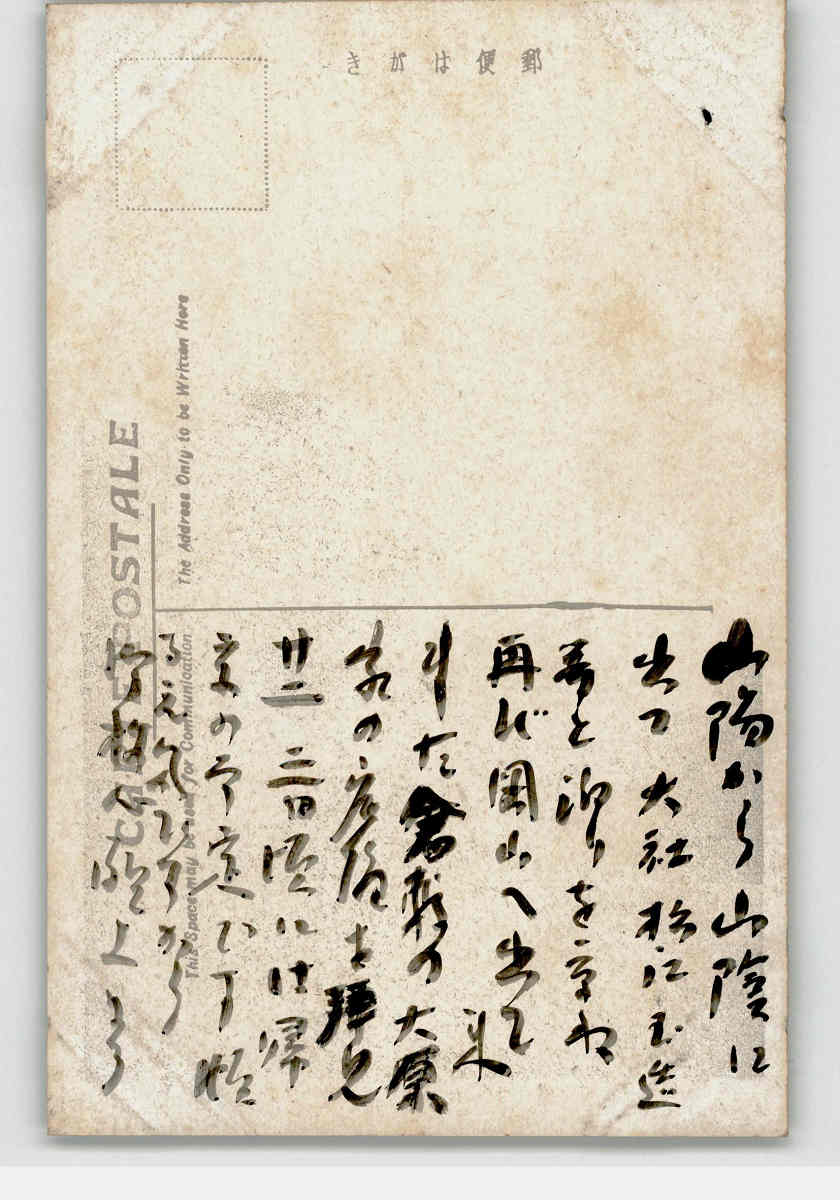 郵便はがき
CARTE POSTALE
The Address Only to be Written Here
This Space may be used for Communication
山陽から山陰に
出て大社松江玉造
等と廻りを重ね
再び岡山へ出て
来ました倉敷の大原
氏の蔵幅を拝見
廿二三日頃には帰
京の予定です
元気ですから
御休心
上